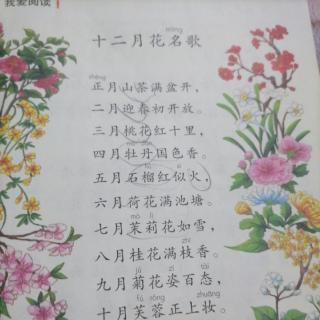 我爱阅读
míng
十二月花名歌
zhēng
正月山茶满盆开，
二月迎春初开放。
三月桃花红十里，
mǔ dān
四月牡丹国色香。
liú
五月石榴红似火，
六月荷花满池塘。
mò lì
七月茉莉花如雪，
zhī
八月桂花满枝香。
jú zī tài
九月菊花姿百态，
fú róng zhuāng
十月芙蓉正上妆。